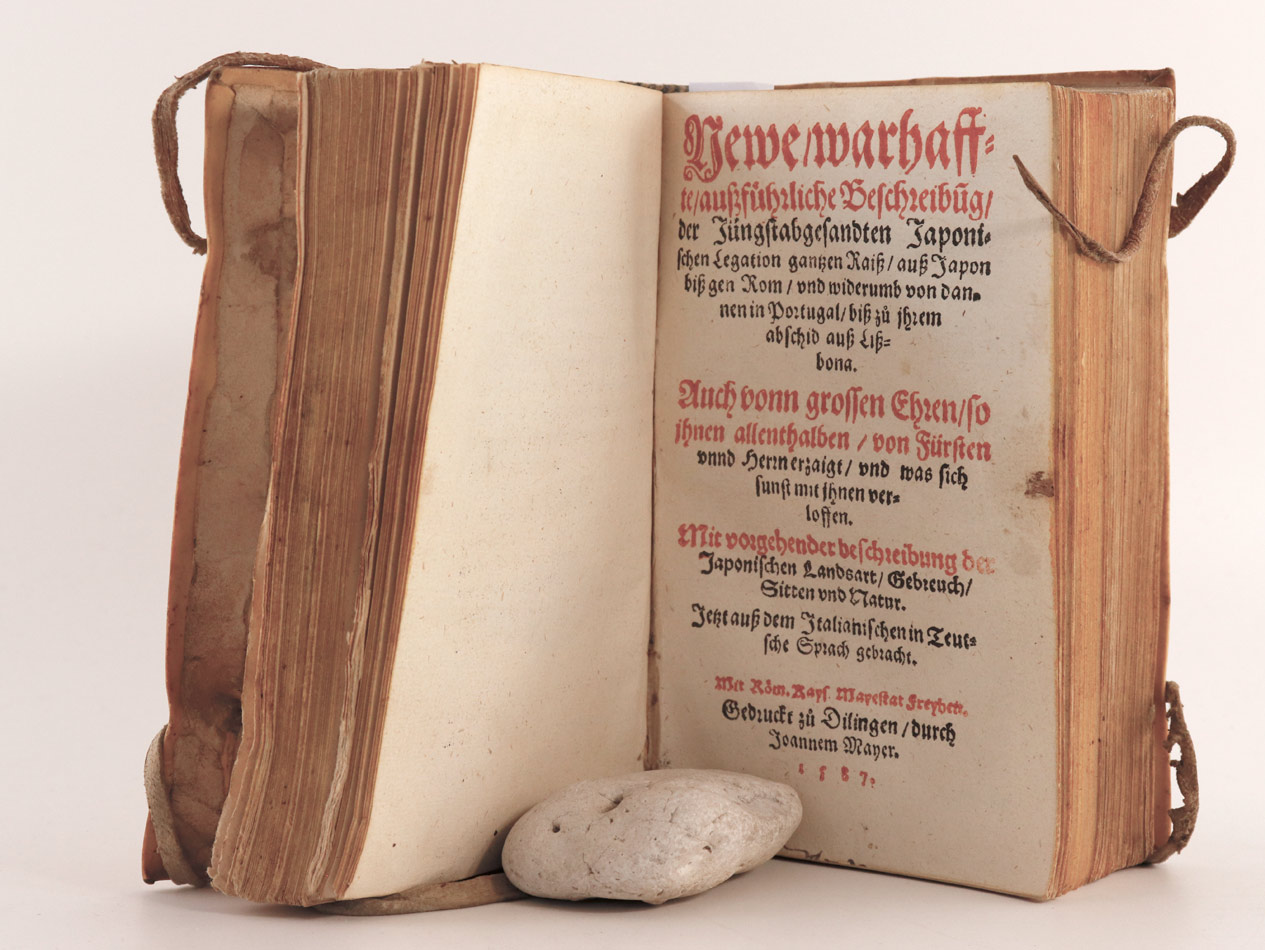 Newe/warhaff⸗
te/außführliche Beschreibūg/
der Jüngstabgesandten Japoni⸗
schen Legation gantzen Raiß/auß Japon
biß gen Rom/vnd widerumb von dan⸗
nen in Portugal/biß zů jhrem
abschid auß Liß⸗
bona.
Auch vonn grossen Ehren/so
jhnen allenthalben/von Fürsten
vnnd Herrn erzaigt/vnd was sich
sunst mit jhnen ver⸗
loffen.
Mit vorgehender beschreibung der
Japonischen Landsart/Gebreuch/
Sitten vnd Natur.
Jetzt auß dem Italianischen in Teut⸗
sche Sprach gebracht.
Mit Röm. Kays. Mayestat Freyheit.
Gedruckt zů Dilingen/durch
Joannem Mayer.
1587.